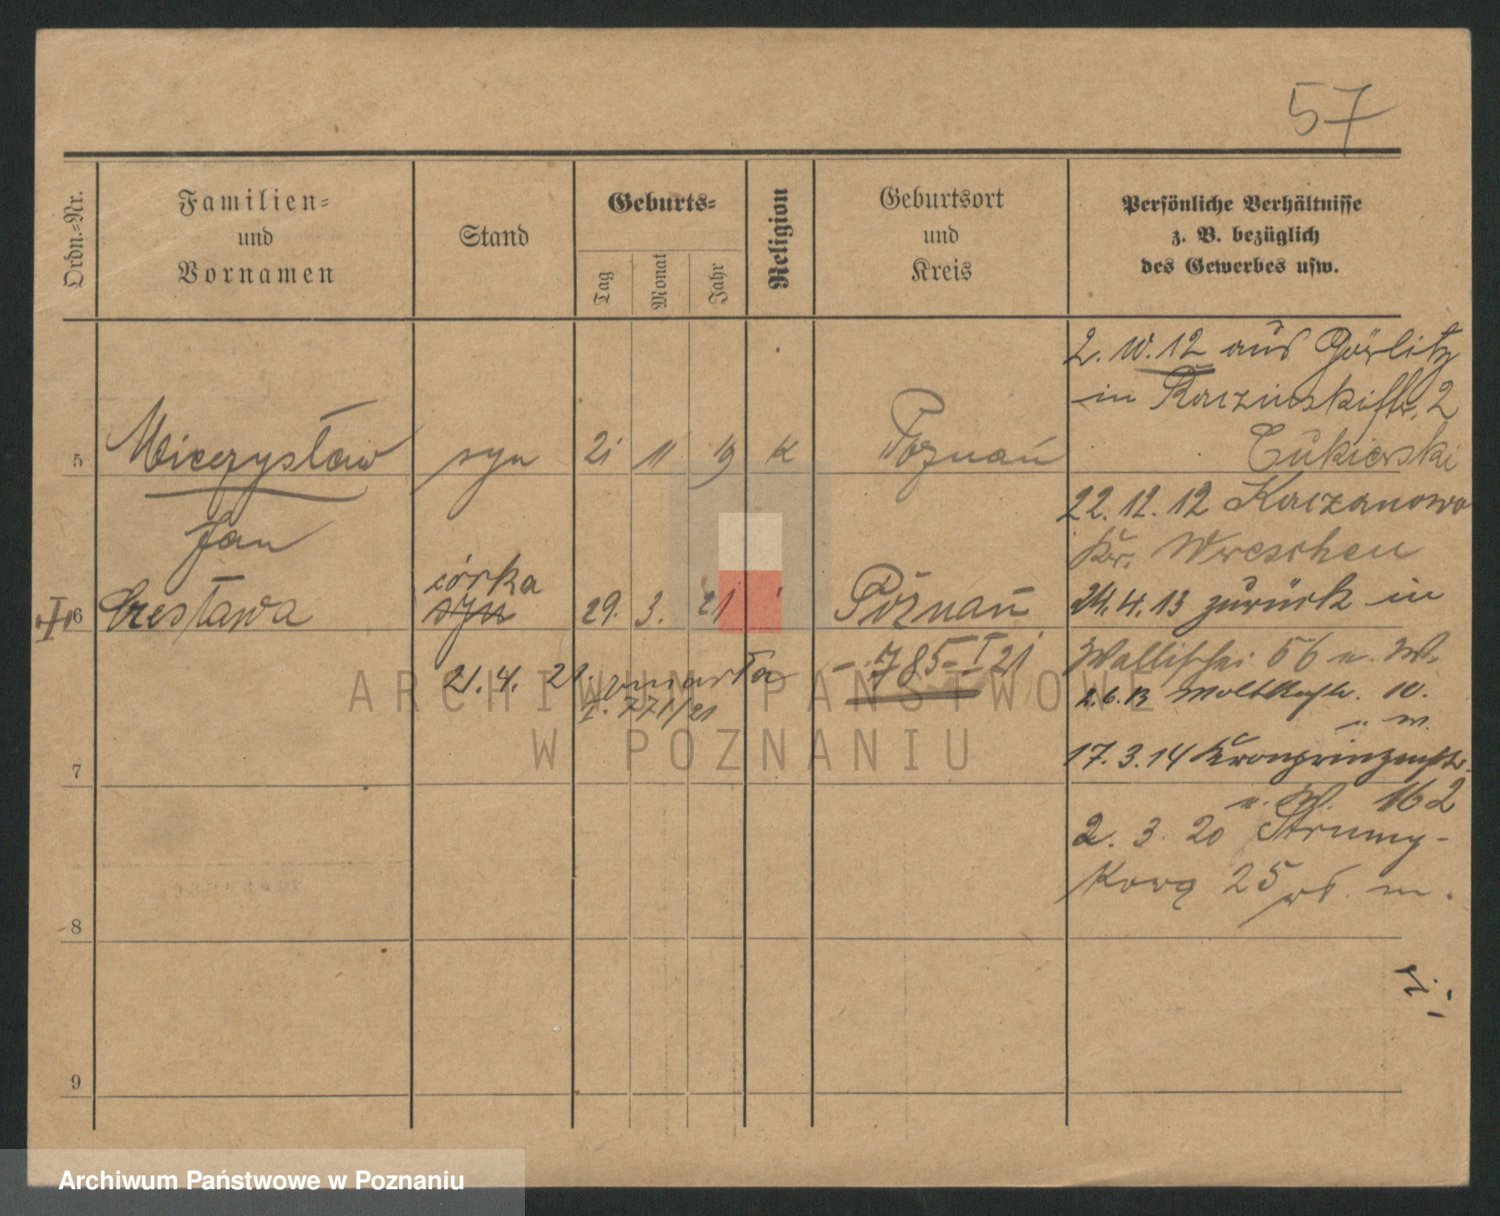 57
Ordn.-Nr.
Familien-
und
Vornamen
Stand
Geburts-
Tag
Monat
Jahr
Religion
Geburtsort
und
Kreis
Persönliche Verhältnisse
z. B. bezüglich
des Gewerbes usw.
2.10.12 aus Görlitz
in Raczinskistr. 2
Cukierski
5 Mieczysław syn 21 11 19 K Poznań
22.12.12 Kaczanowo
Kr. Wreschen
Jan
6 Czesława córka syn 29. 3. 21 Poznań
24.4.13 zurück in
21.4.21 zmarła
I. 771/21
785 I 21
Wallischei 56 u. W.
2.6.13 Moltkestr. 10.
7
17.3.14 Kronprinzenstr.
u. W. 162
2. 3. 20 Strumy-
kowa 25 m.
8
9
ARCHIWUM PAŃSTWOWE
W POZNANIU
Archiwum Państwowe w Poznaniu